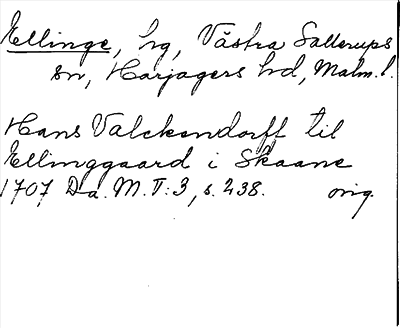 Ellinge, hg, Västra Sallerups
sn, Harjagers hd, Malm. l.
Hans Valckendorff til
Ellinggaard i Skaane
1707 Da. M. II: 3, s. 238. orig.